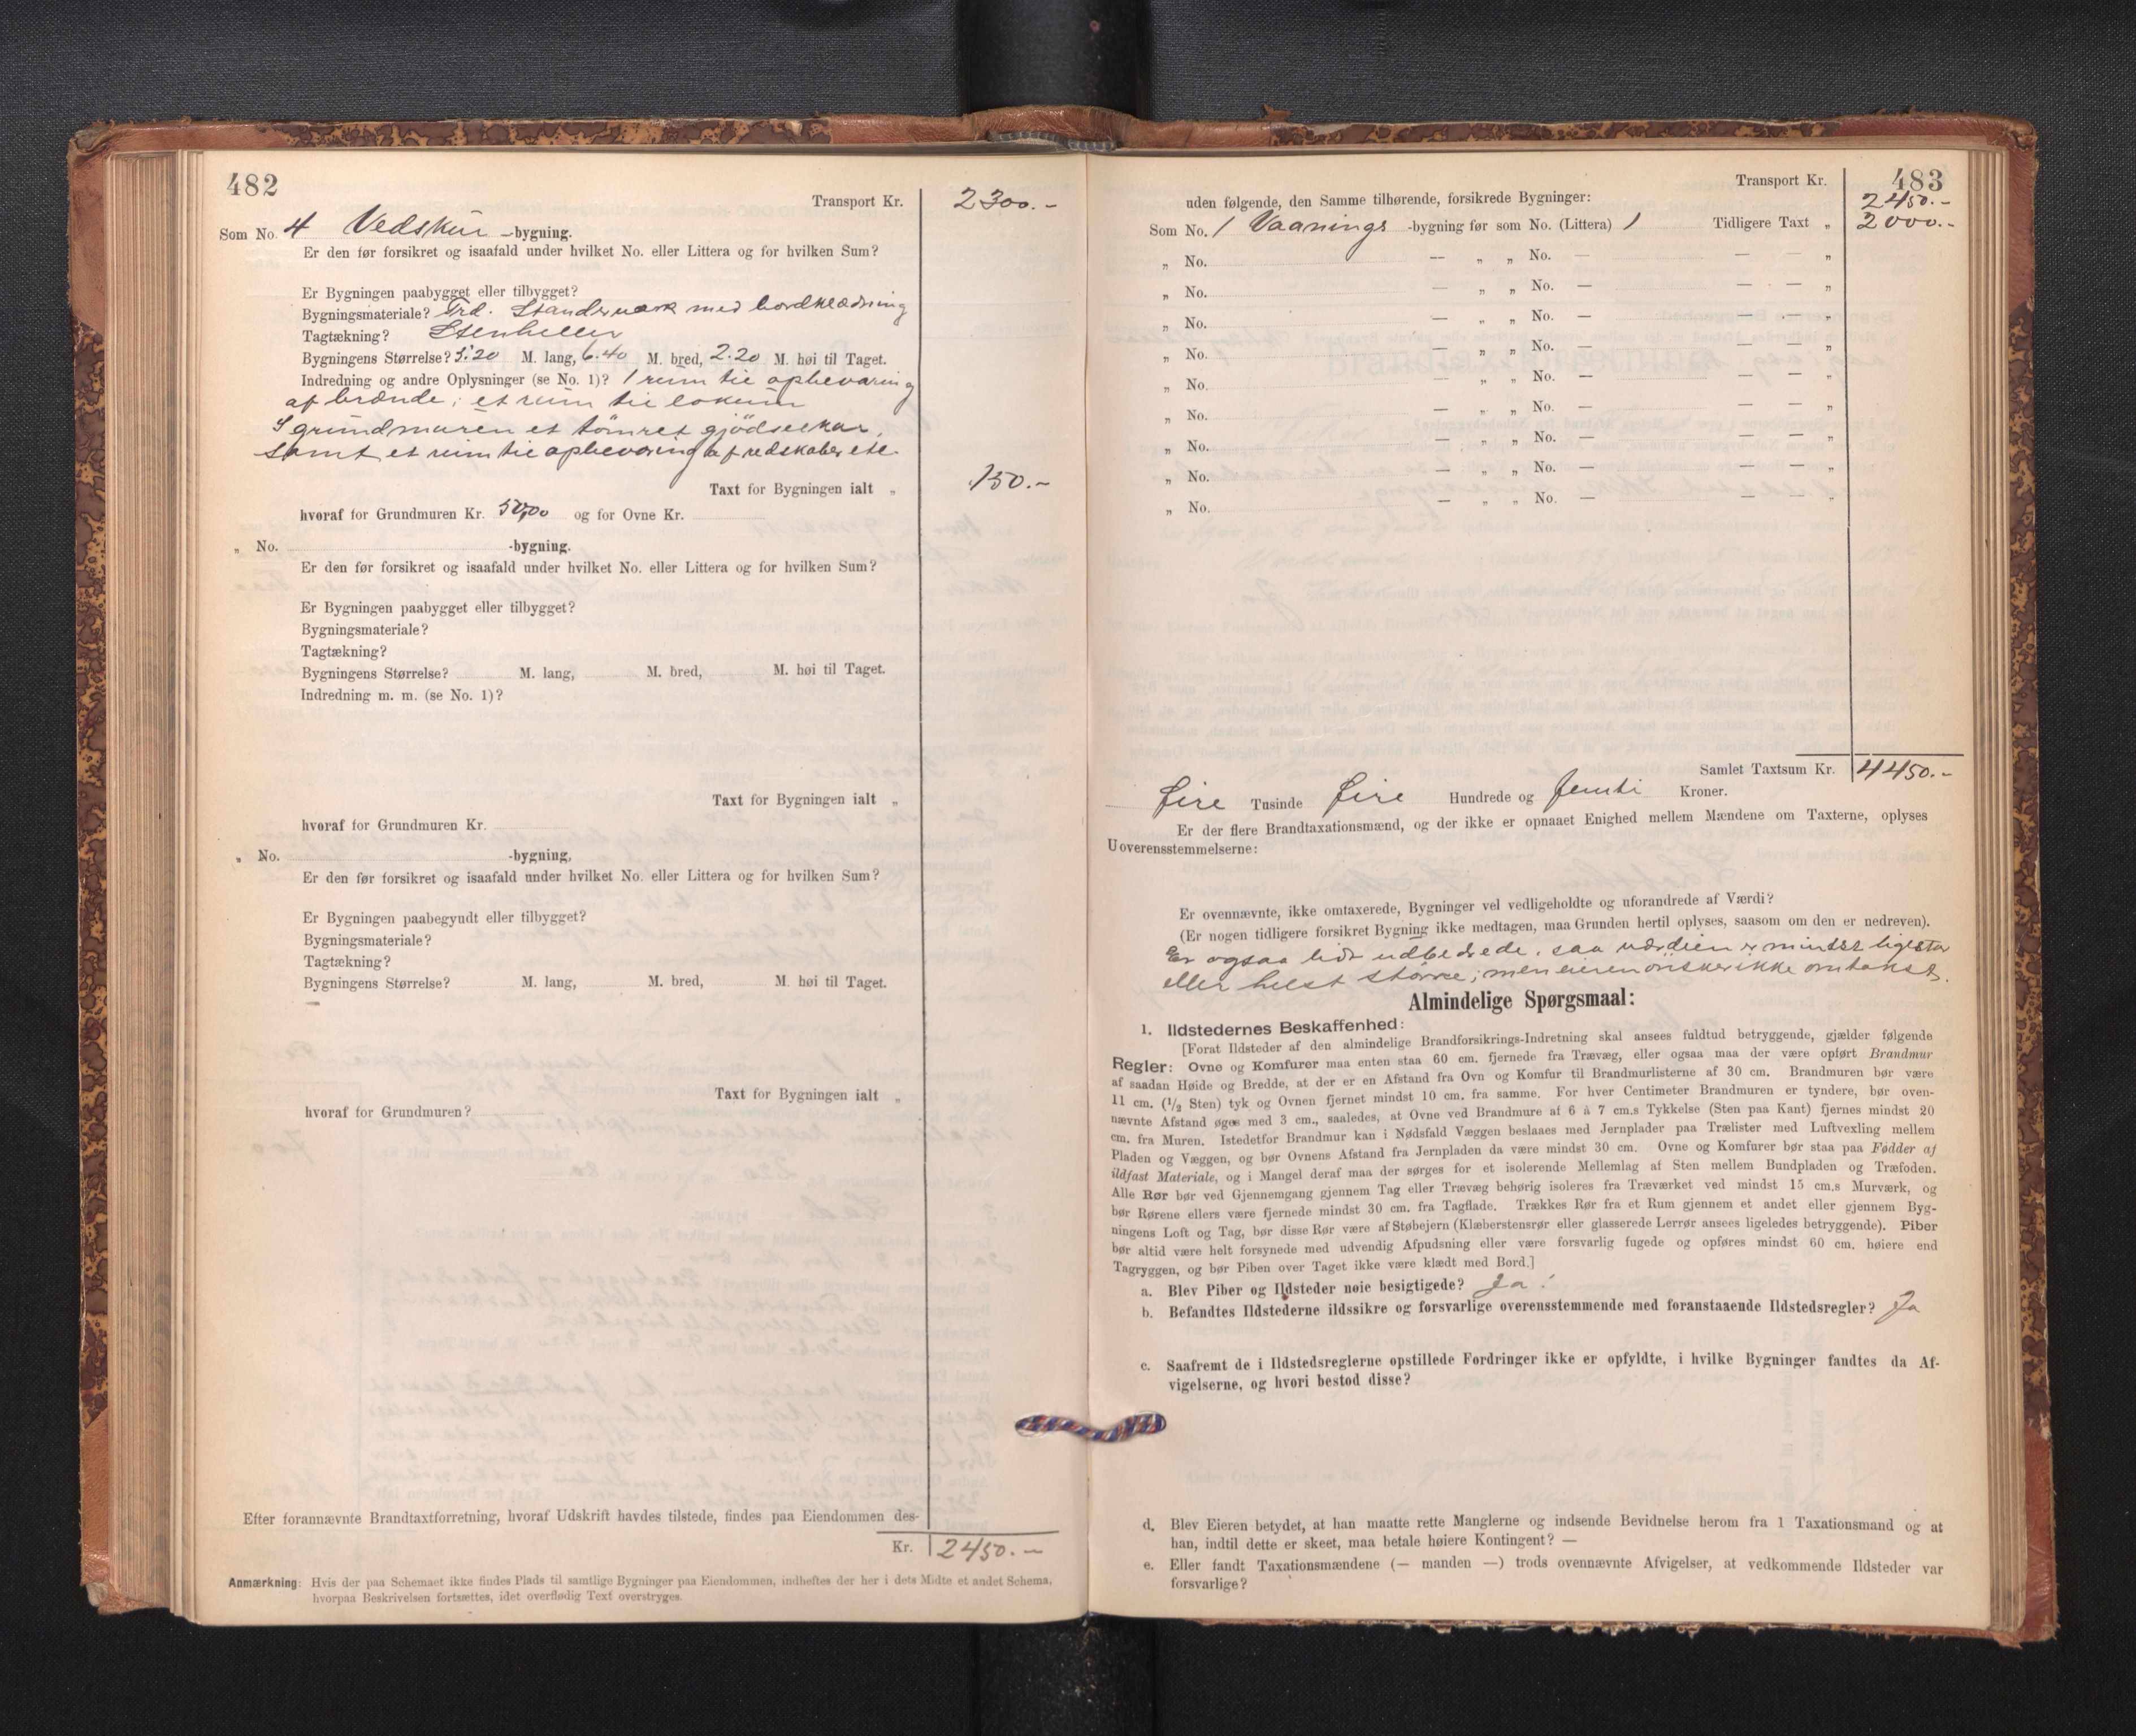 482
Transport Kr. 2300.-
Som No. 4 Vedskur -bygning.
Er den før forsikret og isaafald under hvilket No. eller Littera og for hvilken Sum?
Er Bygningen paabygget eller tilbygget?
Bygningsmateriale? Trd. Standerværk med bordklædning
Tagtækning? Stenheller
Bygningens Størrelse? 5.20 M. lang, 6.40 M. bred, 2.20 M. høi til Taget.
Indredning og andre Oplysninger (se No. 1)? 1 rum til opbevaring
af brænde; et rum til lokum
I grundmuren et tömret gjödselkar,
samt et rum til opbevaring af redskaber etc.
Taxt for Bygningen ialt „ 150.-
hvoraf for Grundmuren Kr. 50,00 og for Ovne Kr.
„ No. -bygning.
Er den før forsikret og isaafald under hvilket No. eller Littera og for hvilken Sum?
Er Bygningen paabygget eller tilbygget?
Bygningsmateriale?
Tagtækning?
Bygningens Størrelse? M. lang, M. bred, M. høi til Taget.
Indredning m. m. (se No. 1)?
Taxt for Bygningen ialt „
hvoraf for Grundmuren Kr.
„ No. -bygning.
Er den før forsikret og isaafald under hvilket No. eller Littera og for hvilken Sum?
Er Bygningen paabegyudt eller tilbygget?
Bygningsmateriale?
Tagtækning?
Bygningens Størrelse? M. lang, M. bred, M. høi til Taget.
Taxt for Bygningen ialt „
hvoraf for Grundmuren?
Efter forannævnte Brandtaxtforretning, hvoraf Udskrift havdes tilstede, findes paa Eiendommen des-
Kr. 2450.-
Anmærkning: Hvis der paa Schemaet ikke findes Plads til samtlige Bygninger paa Eiendommen, indheftes der her i dets Midte et andet Schema,
hvorpaa Beskrivelsen fortsættes, idet overflødig Text overstryges.
483
Transport Kr. 2450.-
uden følgende, den Samme tilhørende, forsikrede Bygninger:
Som No. 1 Vaanings -bygning før som No. (Littera) 1 Tidligere Taxt „ 2000.-
„ No. — „ „ No. — — — „
„ No. — „ „ No. — — — „
„ No. — „ „ No. — — — „
„ No. — „ „ No. — — — „
„ No. — „ „ No. — — — „
„ No. — „ „ No. — — — „
„ No. — „ „ No. — — — „
„ No. — „ „ No. — — — „
„ No. — „ „ No. — — — „
Samlet Taxtsum Kr. 4450.-
Fire Tusinde Fire Hundrede og femti Kroner.
Er der flere Brandtaxationsmænd, og der ikke er opnaaet Enighed mellem Mændene om Taxterne, oplyses
Uoverensstemmelserne:
Er ovennævnte, ikke omtaxerede, Bygninger vel vedligeholdte og uforandrede af Værdi?
(Er nogen tidligere forsikret Bygning ikke medtagen, maa Grunden hertil oplyses, saasom om den er nedreven).
Er ogsaa lidt udbedrede, saa værdien er mindst ligestor
eller helst större; men eieren önsker ikke omtakst.
Almindelige Spørgsmaal:
1. Ildstedernes Beskaffenhed:
[Forat Ildsteder af den almindelige Brandforsikrings-Indretning skal ansees fuldtud betryggende, gjælder følgende
Regler: Ovne og Komfurer maa enten staa 60 cm. fjernede fra Trævæg, eller ogsaa maa der være opført Brandmur
af saadan Høide og Bredde, at der er en Afstand fra Ovn og Komfur til Brandmurlisterne af 30 cm. Brandmuren bør være
11 cm. (½ Sten) tyk og Ovnen fjernet mindst 10 cm. fra samme. For hver Centimeter Brandmuren er tyndere, bør oven-
nævnte Afstand øges med 3 cm., saaledes, at Ovne ved Brandmure af 6 à 7 cm.s Tykkelse (Sten paa Kant) fjernes mindst 20
cm. fra Muren. Istedetfor Brandmur kan i Nødsfald Væggen beslaaes med Jernplader paa Trælister med Luftvexling mellem
Pladen og Væggen, og bør Ovnens Afstand fra Jernpladen da være mindst 30 cm. Ovne og Komfurer bør staa paa Fødder af
ildfast Materiale, og i Mangel deraf maa der sørges for et isolerende Mellemlag af Sten mellem Bundpladen og Træfoden.
Alle Rør bør ved Gjennemgang gjennem Tag eller Trævæg behørig isoleres fra Træværket ved mindst 15 cm.s Murværk, og
bør Rørene ellers være fjernede mindst 30 cm. fra Tagflade. Trækkes Rør fra et Rum gjennem et andet eller gjennem Byg-
ningens Loft og Tag, bør disse Rør være af Støbejern (Klæberstensrør eller glasserede Lerrør ansees ligeledes betryggende). Piber
bør altid være helt forsynede med udvendig Afpudsning eller være forsvarlig fugede og opføres mindst 60 cm. høiere end
Tagryggen, og bør Piben over Taget ikke være klædt med Bord.]
a. Blev Piber og Ildsteder nøie besigtigede? Ja!
b. Befandtes Ildstederne ildssikre og forsvarlige overensstemmende med foranstaaende Ildstedsregler? Ja
c. Saafremt de i Ildstedsreglerne opstillede Fordringer ikke er opfyldte, i hvilke Bygninger fandtes da Af-
vigelserne, og hvori bestod disse?
d. Blev Eieren betydet, at han maatte rette Manglerne og indsende Bevidnelse herom fra 1 Taxationsmand og at
han, indtil dette er skeet, maa betale høiere Kontingent? —
e. Eller fandt Taxationsmændene (— manden —) trods ovennævnte Afvigelser, at vedkommende Ildsteder var
forsvarlige?